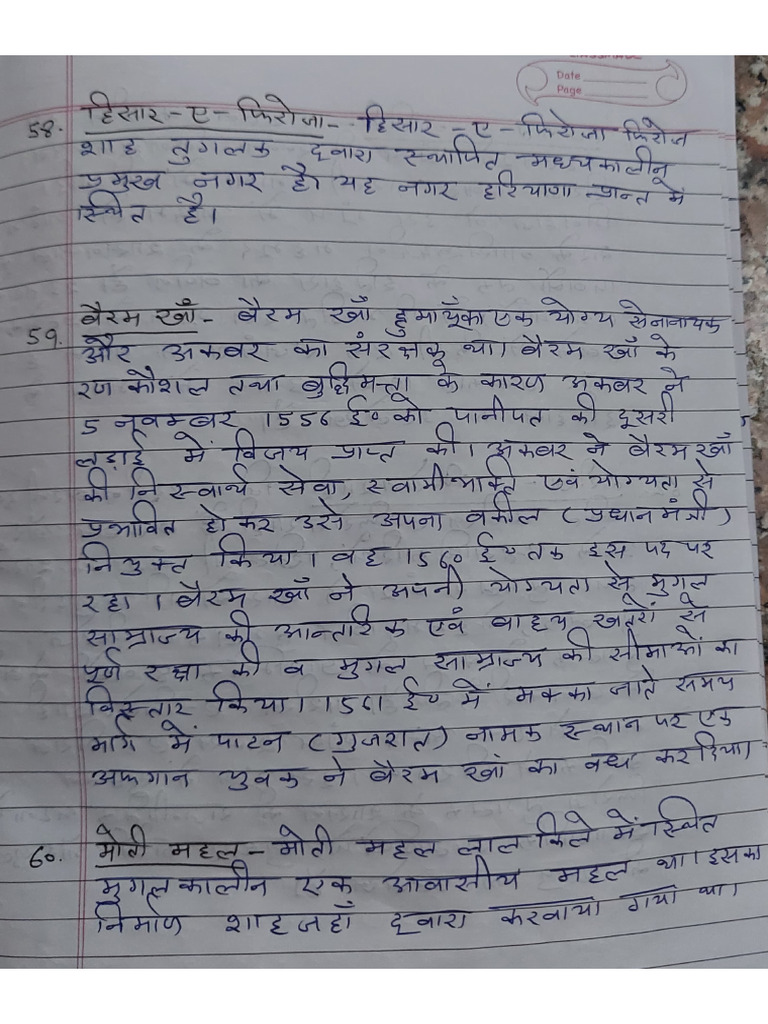 Date
Page
58. हिसार-ए-फिरोजा- हिसार-ए-फिरोजा फिरोज
शाह तुगलक द्वारा स्थापित मध्यकालीन
प्रमुख नगर है। यह नगर हरियाणा प्रान्त में
स्थित है।
59. बैरम खाँ- बैरम खाँ हुमायूँ का एक योग्य सेनानायक
और अकबर का संरक्षक था। बैरम खाँ के
रण कौशल तथा बुद्धिमत्ता के कारण अकबर ने
5 नवम्बर 1556 ई० को पानीपत की दूसरी
लड़ाई में विजय प्राप्त की। अकबर ने बैरम खाँ
की निस्वार्थ सेवा, स्वामीभक्ति एवं योग्यता से
प्रभावित होकर उसे अपना वकील (प्रधानमंत्री)
नियुक्त किया। वह 1560 ई० तक इस पद पर
रहा। बैरम खाँ ने अपनी योग्यता से मुगल
साम्राज्य की आन्तरिक एवं बाह्य खतरों से
पूर्ण रक्षा की व मुगल साम्राज्य की सीमाओं का
विस्तार किया। 1561 ई० में मक्का जाते समय
मार्ग में पाटन (गुजरात) नामक स्थान पर एक
अफगान युवक ने बैरम खां का वध कर दिया।
60. मोती महल- मोती महल लाल किले में स्थित
मुगलकालीन एक आवासीय महल था। इसका
निर्माण शाहजहाँ द्वारा करवाया गया था।